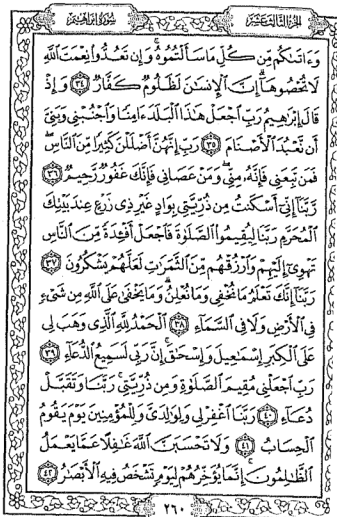 الجزء الثالث عشر سورة ابراهيم
وَءَاتَىٰكُم مِّن كُلِّ مَا سَأَلْتُمُوهُ ۚ وَإِن تَعُدُّوا۟ نِعْمَتَ ٱللَّهِ
لَا تُحْصُوهَآ ۗ إِنَّ ٱلْإِنسَٰنَ لَظَلُومٌ كَفَّارٌ ٣٤ وَإِذْ
قَالَ إِبْرَٰهِيمُ رَبِّ ٱجْعَلْ هَٰذَا ٱلْبَلَدَ ءَامِنًا وَٱجْنُبْنِى وَبَنِىَّ
أَن نَّعْبُدَ ٱلْأَصْنَامَ ٣٥ رَبِّ إِنَّهُنَّ أَضْلَلْنَ كَثِيرًا مِّنَ ٱلنَّاسِ ۖ
فَمَن تَبِعَنِى فَإِنَّهُۥ مِنِّى ۖ وَمَنْ عَصَانِى فَإِنَّكَ غَفُورٌ رَّحِيمٌ ٣٦
رَّبَّنَآ إِنِّىٓ أَسْكَنتُ مِن ذُرِّيَّتِى بِوَادٍ غَيْرِ ذِى زَرْعٍ عِندَ بَيْتِكَ
ٱلْمُحَرَّمِ رَبَّنَا لِيُقِيمُوا۟ ٱلصَّلَوٰةَ فَٱجْعَلْ أَفْـِٔدَةً مِّنَ ٱلنَّاسِ
تَهْوِىٓ إِلَيْهِمْ وَٱرْزُقْهُم مِّنَ ٱلثَّمَرَٰتِ لَعَلَّهُمْ يَشْكُرُونَ ٣٧
رَبَّنَآ إِنَّكَ تَعْلَمُ مَا نُخْفِى وَمَا نُعْلِنُ ۗ وَمَا يَخْفَىٰ عَلَى ٱللَّهِ مِن شَىْءٍ
فِى ٱلْأَرْضِ وَلَا فِى ٱلسَّمَآءِ ٣٨ ٱلْحَمْدُ لِلَّهِ ٱلَّذِى وَهَبَ لِى
عَلَى ٱلْكِبَرِ إِسْمَٰعِيلَ وَإِسْحَٰقَ ۚ إِنَّ رَبِّى لَسَمِيعُ ٱلدُّعَآءِ ٣٩
رَبِّ ٱجْعَلْنِى مُقِيمَ ٱلصَّلَوٰةِ وَمِن ذُرِّيَّتِى ۚ رَبَّنَا وَتَقَبَّلْ
دُعَآءِ ٤٠ رَبَّنَا ٱغْفِرْ لِى وَلِوَٰلِدَىَّ وَلِلْمُؤْمِنِينَ يَوْمَ يَقُومُ
ٱلْحِسَابُ ٤١ وَلَا تَحْسَبَنَّ ٱللَّهَ غَٰفِلًا عَمَّا يَعْمَلُ
ٱلظَّٰلِمُونَ ۚ إِنَّمَا يُؤَخِّرُهُمْ لِيَوْمٍ تَشْخَصُ فِيهِ ٱلْأَبْصَٰرُ ٤٢
٢٦٠